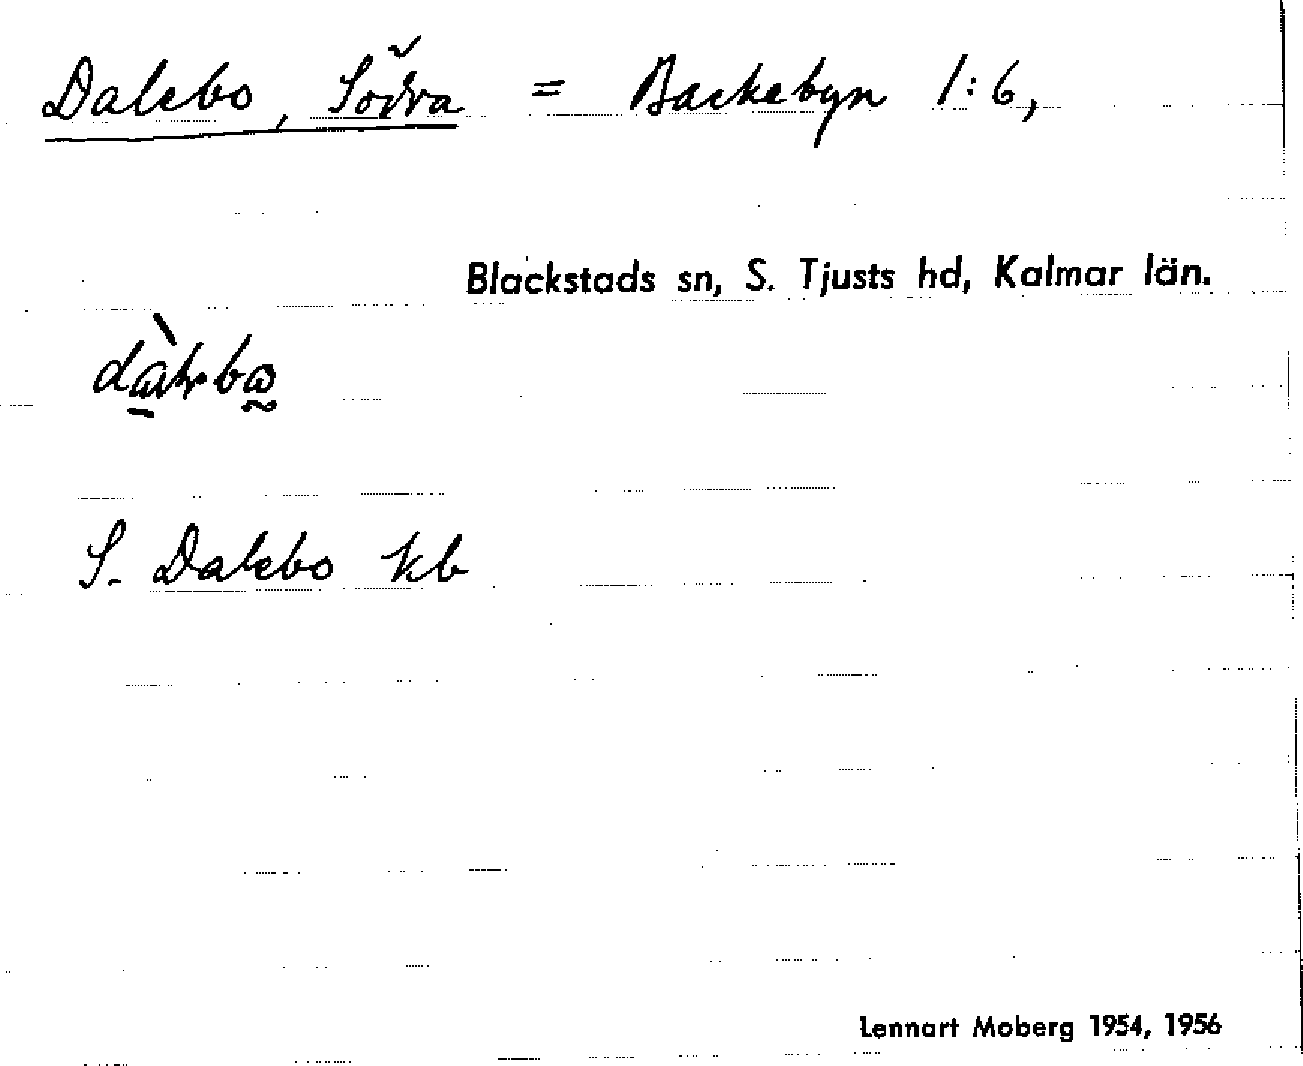 Dalebo, Södra = Backebyn 1:6,
Blackstads sn, S. Tjusts hd, Kalmar län.
S. Dalebo kb
Lennart Moberg 1954, 1956